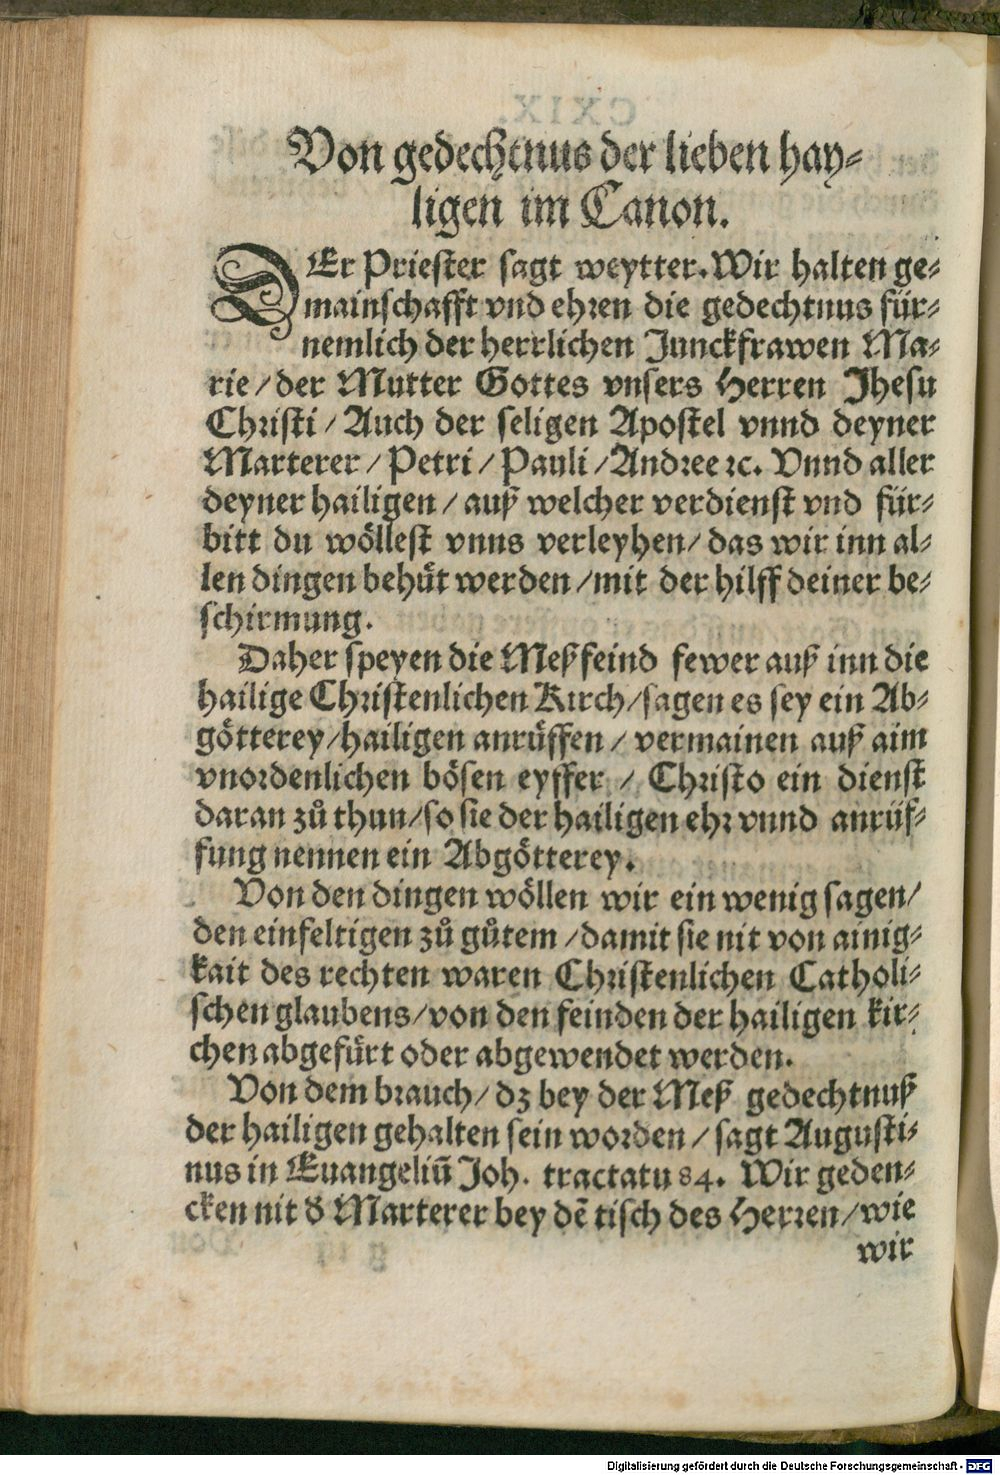 Von gedechtnus der lieben hay⸗
ligen im Canon.
DEr Priester sagt weytter. Wir halten ge⸗
mainschafft vnd ehren die gedechtnus für⸗
nemlich der herrlichen Junckfrawen Ma⸗
rie / der Mutter Gottes vnsers Herren Jhesu
Christi / Auch der seligen Apostel vnnd deyner
Marterer / Petri / Pauli / Andree ꝛc. Vnnd aller
deyner hailigen / auß welcher verdienst vnd für⸗
bitt du wöllest vnns verleyhen / das wir inn al⸗
len dingen behuͤt werden / mit der hilff deiner be⸗
schirmung.
Daher speyen die Meßfeind fewer auß inn die
hailige Christenlichen Kirch / sagen es sey ein Ab⸗
götterey / hailigen anruͤffen / vermainen auß aim
vnordenlichen bösen eyffer / Christo ein dienst
daran zů thun / so sie der hailigen ehr vnnd anrüf⸗
fung nennen ein Abgötterey.
Von den dingen wöllen wir ein wenig sagen /
den einfeltigen zů gůtem / damit sie nit von ainig⸗
kait des rechten waren Christenlichen Catholi⸗
schen glaubens / von den feinden der hailigen kir⸗
chen abgefuͤrt oder abgewendet werden.
Von dem brauch / dz bey der Meß gedechtnuß
der hailigen gehalten sein worden / sagt Augusti⸗
nus in Euangeliū Joh. tractatu 84. Wir geden⸗
cken nit d̕ Marterer bey dē tisch des Herren / wie
wir
Digitalisierung gefördert durch die Deutsche Forschungsgemeinschaft - DFG